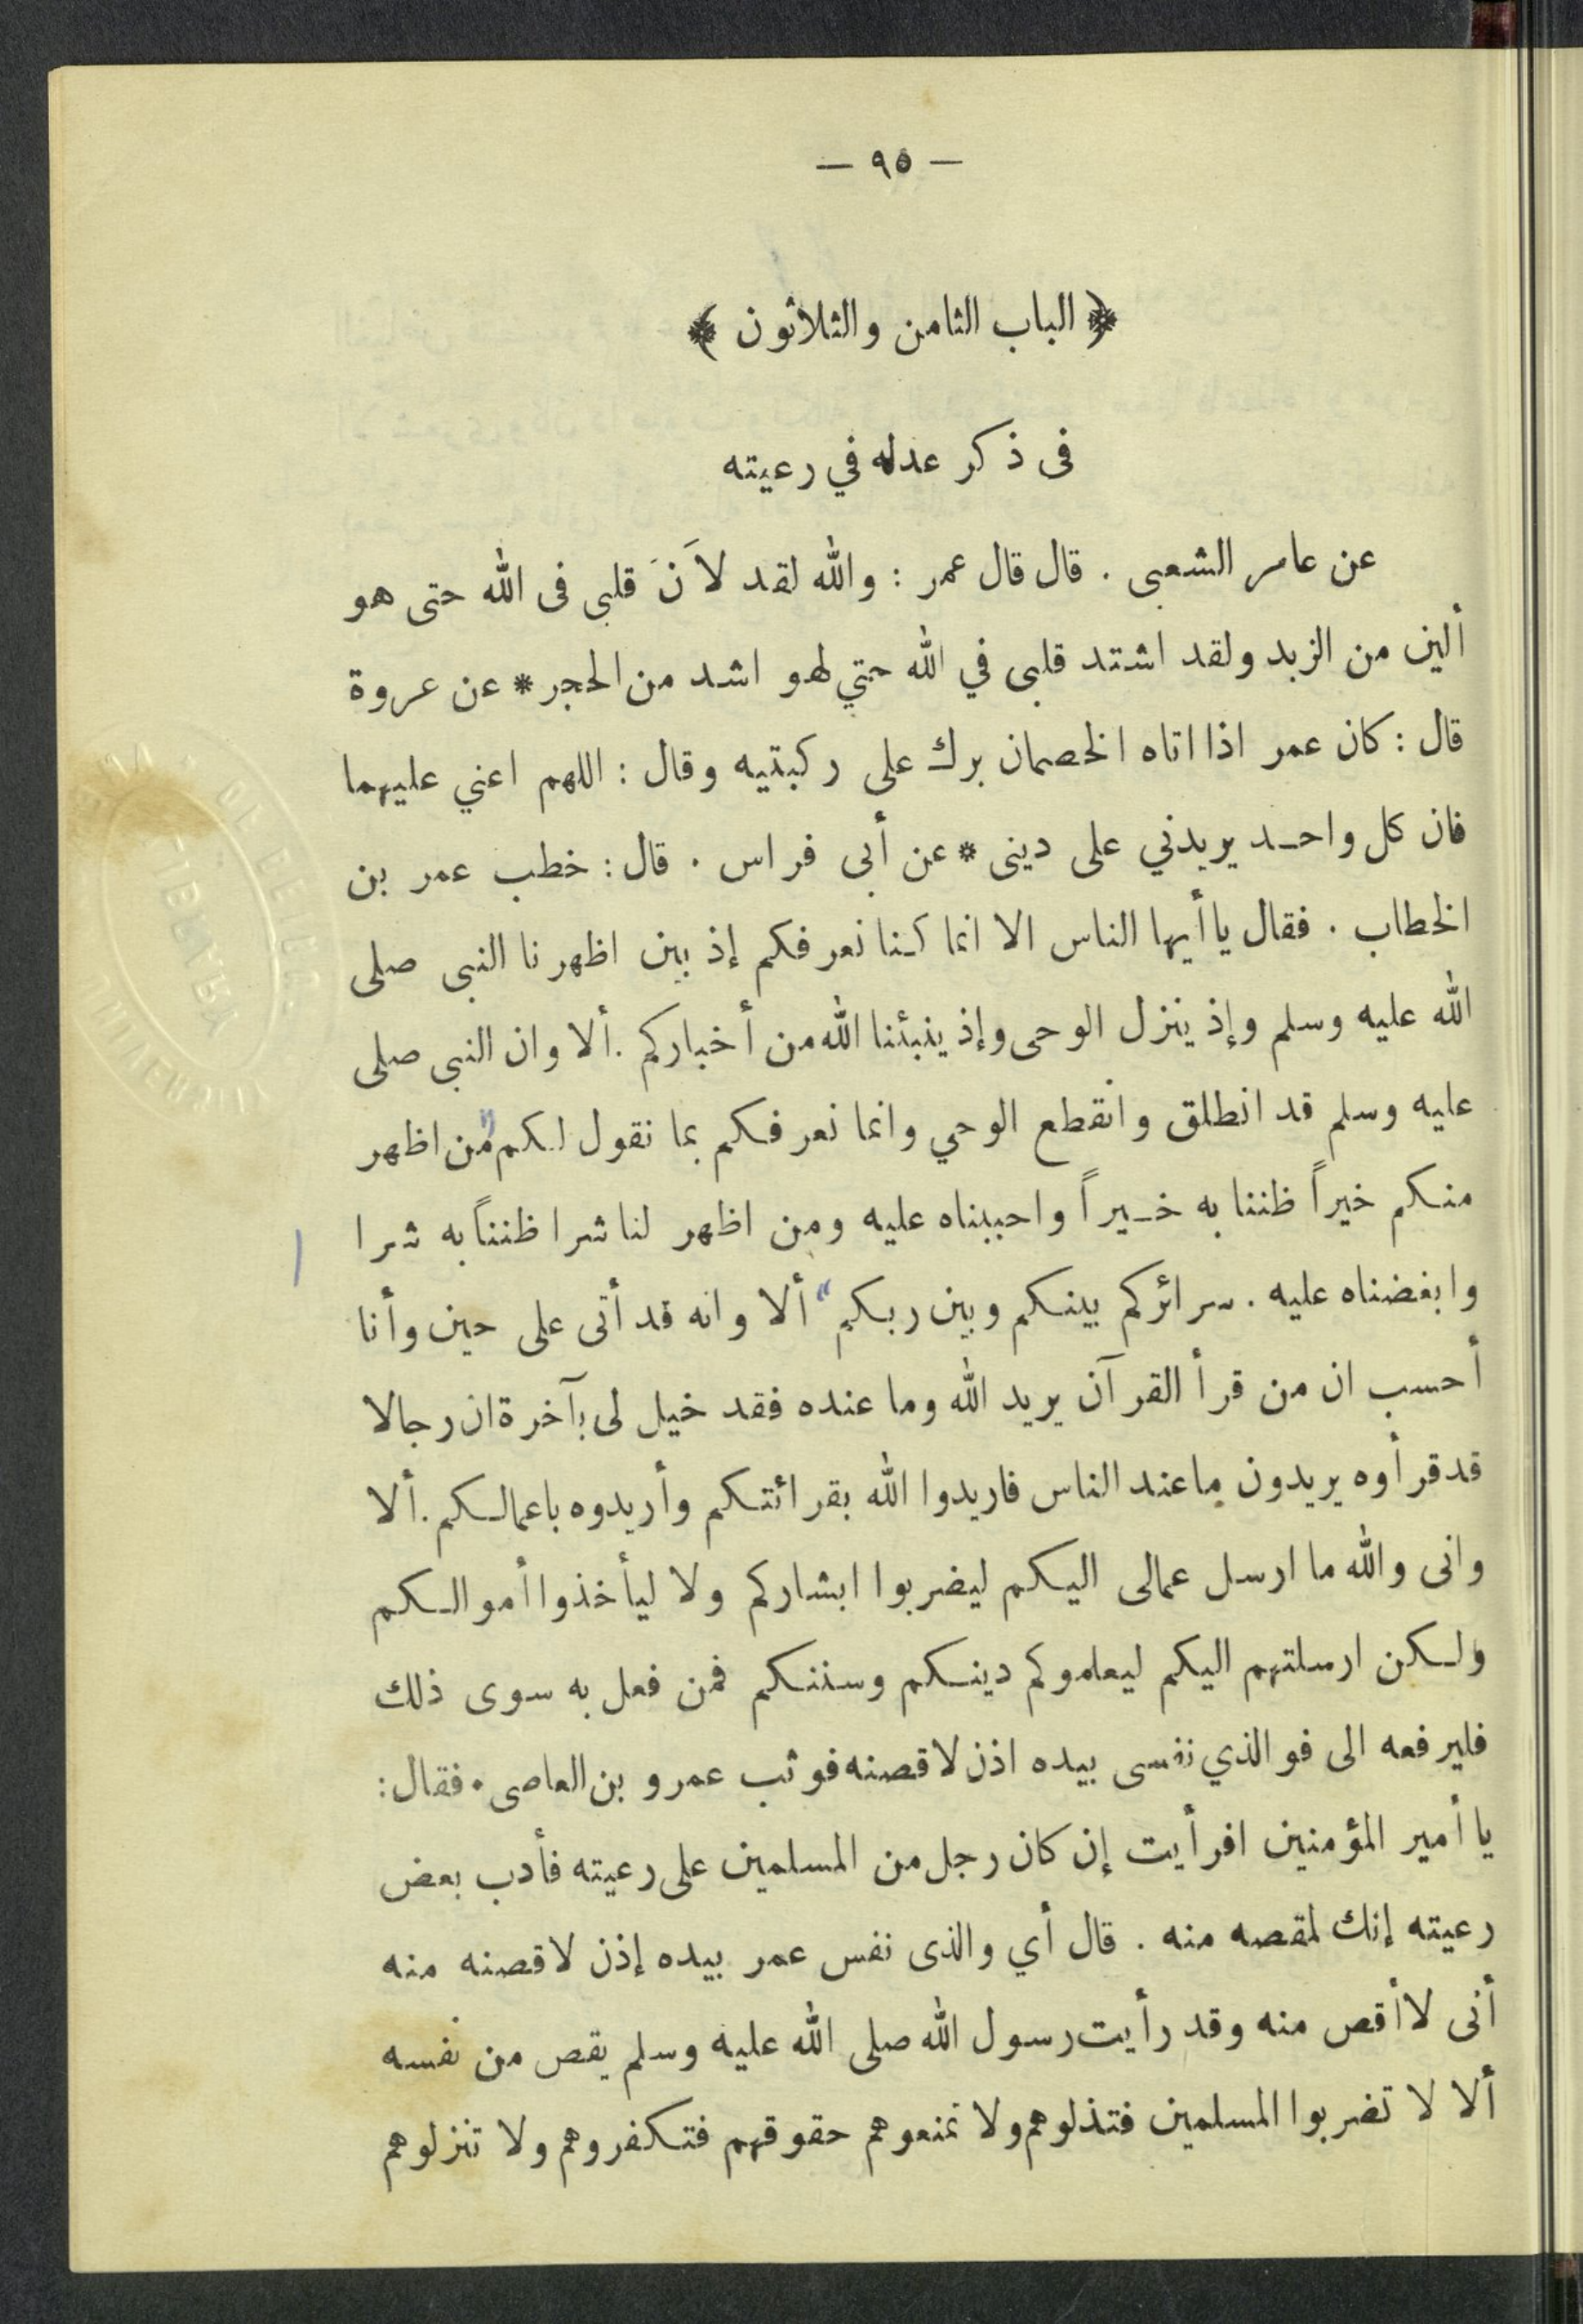 — ٩٥ —
﴿ الباب الثامن والثلاثون ﴾
فى ذكر عدله في رعيته
عن عامر الشعبى . قال قال عمر : والله لقد لاَنَ قلبى فى الله حتى هو
ألين من الزبد ولقد اشتد قلبى في الله حتي لهو اشد من الحجر * عن عروة
قال : كان عمر اذا اتاه الخصمان برك على ركبتيه وقال : اللهم اعني عليهما
فان كل واحد يريدني على دينى * عن أبى فراس . قال : خطب عمر بن
الخطاب . فقال يا أيها الناس الا انما كنا نعرفكم إذ بين اظهرنا النبى صلى
الله عليه وسلم وإذ ينزل الوحى وإذ ينبئنا الله من أخباركم . ألا وان النبى صلى
عليه وسلم قد انطلق وانقطع الوحي وانما نعرفكم بما نقول لكم "من اظهر
منكم خيراً ظننا به خيراً واحببناه عليه ومن اظهر لنا شرا ظنناً به شرا
وابغضناه عليه . سرائركم بينكم وبين ربكم" ألا وانه قد أتى على حين وأنا
أحسب ان من قرأ القرآن يريد الله وما عنده فقد خيل لى بآخرة ان رجالا
قد قرأوه يريدون ما عند الناس فاريدوا الله بقرائتكم وأريدوه باعمالكم . ألا
وانى والله ما ارسل عمالى اليكم ليضربوا ابشاركم ولا ليأخذوا أموالكم
ولكن ارسلتهم اليكم ليعلموكم دينكم وسننكم فمن فعل به سوى ذلك
فليرفعه الى فو الذي نفسى بيده اذن لاقصنه فوثب عمرو بن العاصى . فقال :
يا أمير المؤمنين افرأيت إن كان رجل من المسلمين على رعيته فأدب بعض
رعيته إنك لمقصه منه . قال أي والذى نفس عمر بيده إذن لاقصنه منه
أنى لا أقص منه وقد رأيت رسول الله صلى الله عليه وسلم يقص من نفسه
ألا لا تضربوا المسلمين فتذلوهم ولا تمنعوهم حقوقهم فتكفروهم ولا تنزلوهم